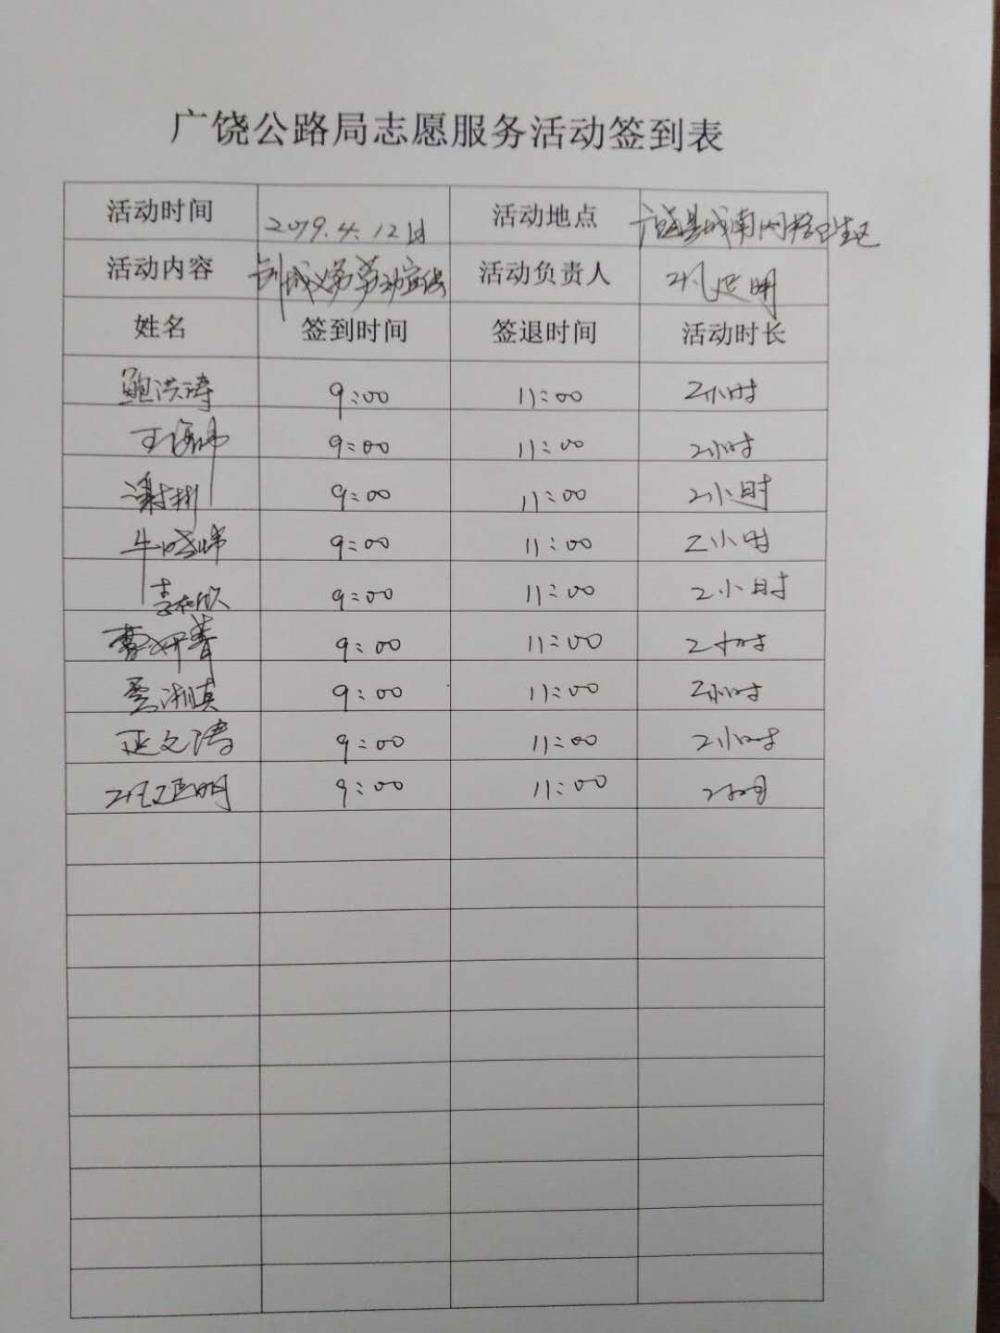 广饶公路局志愿服务活动签到表
活动时间 2019.4.12日 活动地点 广饶县城南网格卫生区
活动内容 创城义务劳动宣传 活动负责人 延明
姓名 签到时间 签退时间 活动时长
鲍洪涛 9:00 11:00 2小时
王海伟 9:00 11:00 2小时
谢彬 9:00 11:00 2小时
牛晓峰 9:00 11:00 2小时
李欣 9:00 11:00 2小时
曹妍青 9:00 11:00 2小时
淑真 9:00 11:00 2小时
文涛 9:00 11:00 2小时
延明 9:00 11:00 2小时